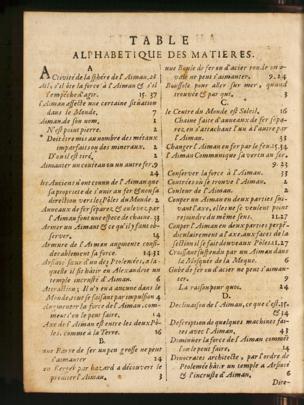 TABLE
ALPHABETIQUE DES MATIERES.
A
Activité de la sphére de l'Aiman, 28
Ail, s'il ôte la force à l'Aiman & s'il
l'empêche d'agir. 35.37
l'Aiman affecte une certaine situation
dans le Monde, 7
Aiman de son nom, 2
N'est point pierre. 2
Doit être mis au nombre des métaux
imparfaits ou des mineraux. 2
D'où il est tiré, 2
Aimanter un couteau en un autre fer, 9
24
les Anciens n'ont connu de l'Aiman que
sa proprieté de s'unir au fer & non sa
direction vers les Pôles du Monde. 2
Anneaux de fer separez & enlevez par
l'Aiman font une espece de chaine. 33
Armer un Aimant & ce qu'il y faut observer,
24
Armure de l'Aiman augmente considerablement
sa force. 14.32
Arsinoé sœur d'un des Ptolemées, laquelle
il fit bâtir en Alexandrie un
temple incrusté d'Aiman. 6
Attraction; Il n'y en a aucune dans le
Monde, tout se faisant par impulsion 4
Augmenter la force de l'Aiman, comment
on le peut faire, 14
Axe de l'Aiman est entre les deux Pôles,
comme à la Terre. 16
B.
une Barre de fer un peu grosse ne peut
s'aimanter 24
un Berger par hazard a découvert le
premier l'Aiman, 3
une Boule de fer ou d'acier ronde ou ovale
ne peut s'aimanter, 9.24
Boussole pour aller sur mer, quand
trouvée & par qui, 3
C.
le Centre du Monde est Soleil, 16
Chaine faite d'anneaux de fer separez,
en s'attachant l'un à l'autre par
l'Aiman. 33
Changer l'Aiman en fer par le feu. 15.34
l'Aiman Communique sa vertu au fer,
9.23
Conserver la force à l'Aiman. 33
Contrées où se trouve l'Aiman. 2
Couleur de l'Aiman.
Couper un Aiman en deux parties suivant
l'axe, elles ne se veulent point
rejoindre du même sens. 11.27
Couper l'Aiman en deux parties perpendiculairement
à l'axe, aux faces de la
section il se fait de nouveaux Pôles. 11.27
Croissant suspendu par un Aiman dans
la Mosquée de la Mecque. 6
Cube de fer ou d'acier ne peut s'aimanter.
9
La raison pourquoi. 24
D.
Declinaison de l'Aiman, ce que c'est. 35.
& 34
Description de quelques machines faites
avec l'Aiman, 43
Diminuer la force de l'Aiman comme
l'on le peut faire, 14
Dinocrates architecte, par l'ordre de
Ptolemée bâtit un temple à Arsinoé
& l'incruste d'Aiman, 6
Dire-